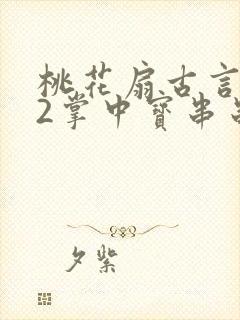 桃花扇古言
2掌中寳串
夕紫